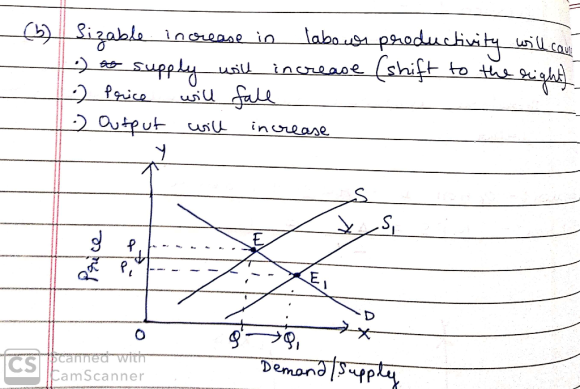 (b) Sizable increase in labour productivity will cau
•) supply will increase (shift to the right)
•) Price will fall
•) Output will increase
Y
S
S₁
E
P
Price
P₁
E₁
D
O
Q → Q₁
X
Demand/Supply
CS Scanned with
CamScanner